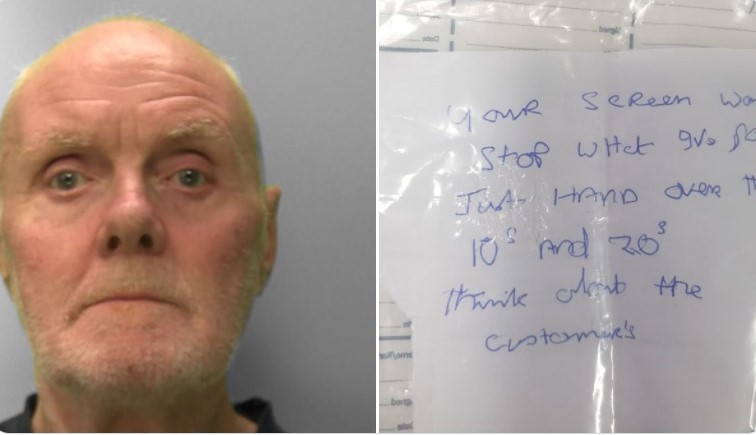 your screen wo
STOP WHat
Just HAND over th
10s and 20s
think about the
customer's
signed
Date
Signed
Date